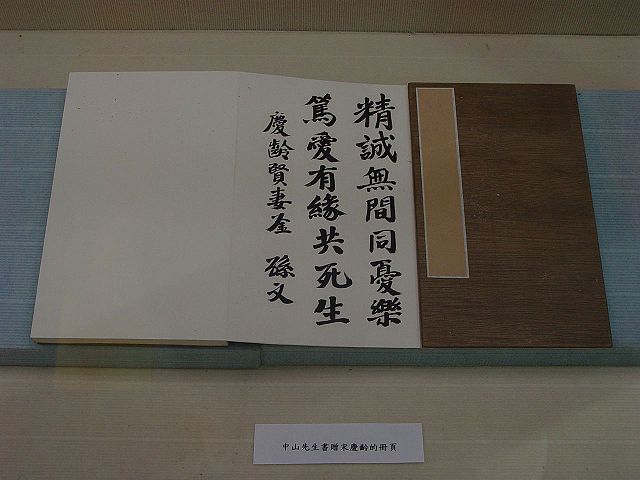 精誠無間同憂樂
篤愛有緣共死生
慶齡賢妻鉴 孫文
中山先生書贈宋慶齡的冊頁